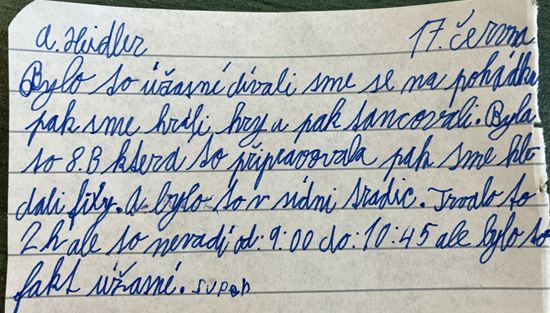 A. Heidler 17. června
Bylo to úžasní dívali sme se na pohádku
pak sme hráli, hry a pak tancovali. Byla
to 8.B kterd to připravovala pak sme hle
dali fixy. A bylo to v sídni tradic. Trvalo to
2 h ale to nevadí od: 9:00 do: 10:45 ale bylo to
fakt úžasné. super